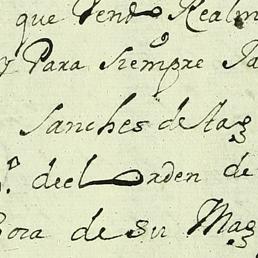 que Vendo Realm
y Para Siempre Ja
Sanches de
de el Orden de
de su Mag